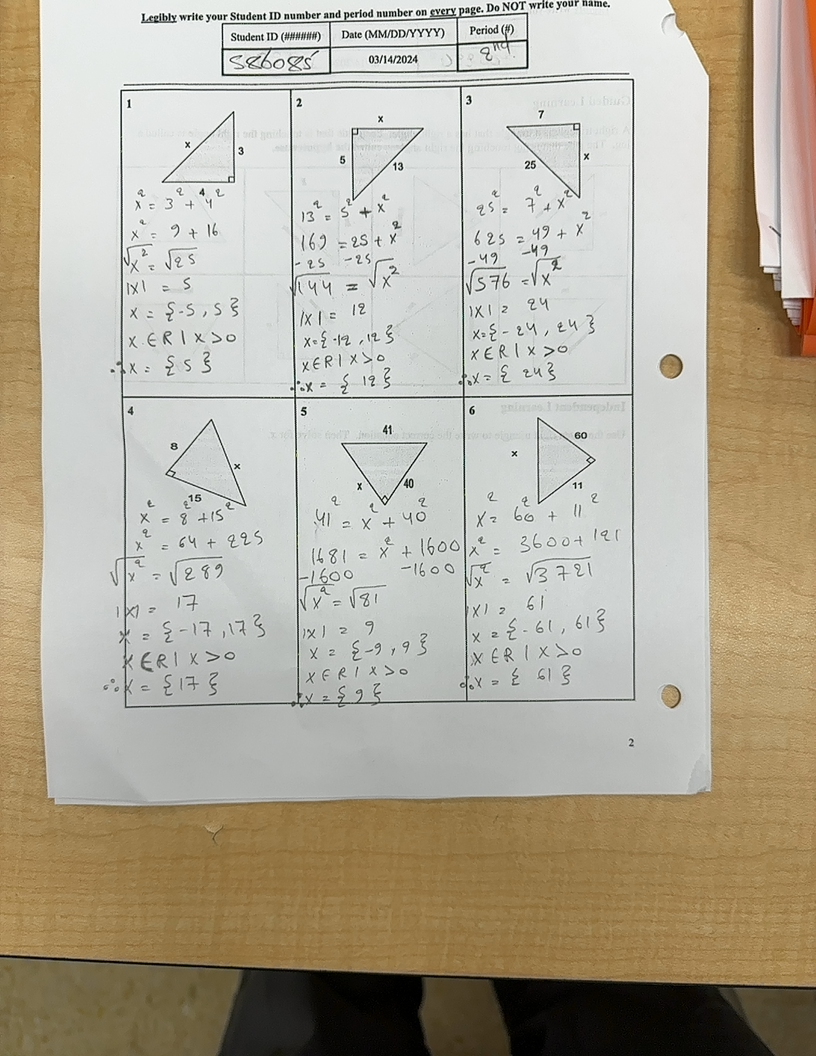 Legibly write your Student ID number and period number on every page. Do NOT write your name.
Student ID (######) Date (MM/DD/YYYY) Period (#)
586085 03/14/2024 2nd
1
x
3
4
x² = 3² + 4²
x² = 9 + 16
√x² = √25
|x| = 5
x = {-5, 5}
x ∈ R | x > 0
∴ x = {5}
2
x
5
13
13² = 5² + x²
169 = 25 + x²
-25 -25
√144 = √x²
|x| = 12
x = {-12, 12}
x ∈ R | x > 0
∴ x = {12}
3
7
25
x
25² = 7² + x²
625 = 49 + x²
-49 -49
√576 = √x²
|x| = 24
x = {-24, 24}
x ∈ R | x > 0
∴ x = {24}
4
8
x
15
x² = 8² + 15²
x² = 64 + 225
√x² = √289
|x| = 17
x = {-17, 17}
x ∈ R | x > 0
∴ x = {17}
5
41
x
40
41² = x² + 40²
1681 = x² + 1600
-1600 -1600
√x² = √81
|x| = 9
x = {-9, 9}
x ∈ R | x > 0
∴ x = {9}
6
60
x
11
x² = 60² + 11²
x² = 3600 + 121
√x² = √3721
|x| = 61
x = {-61, 61}
x ∈ R | x > 0
∴ x = {61}
2